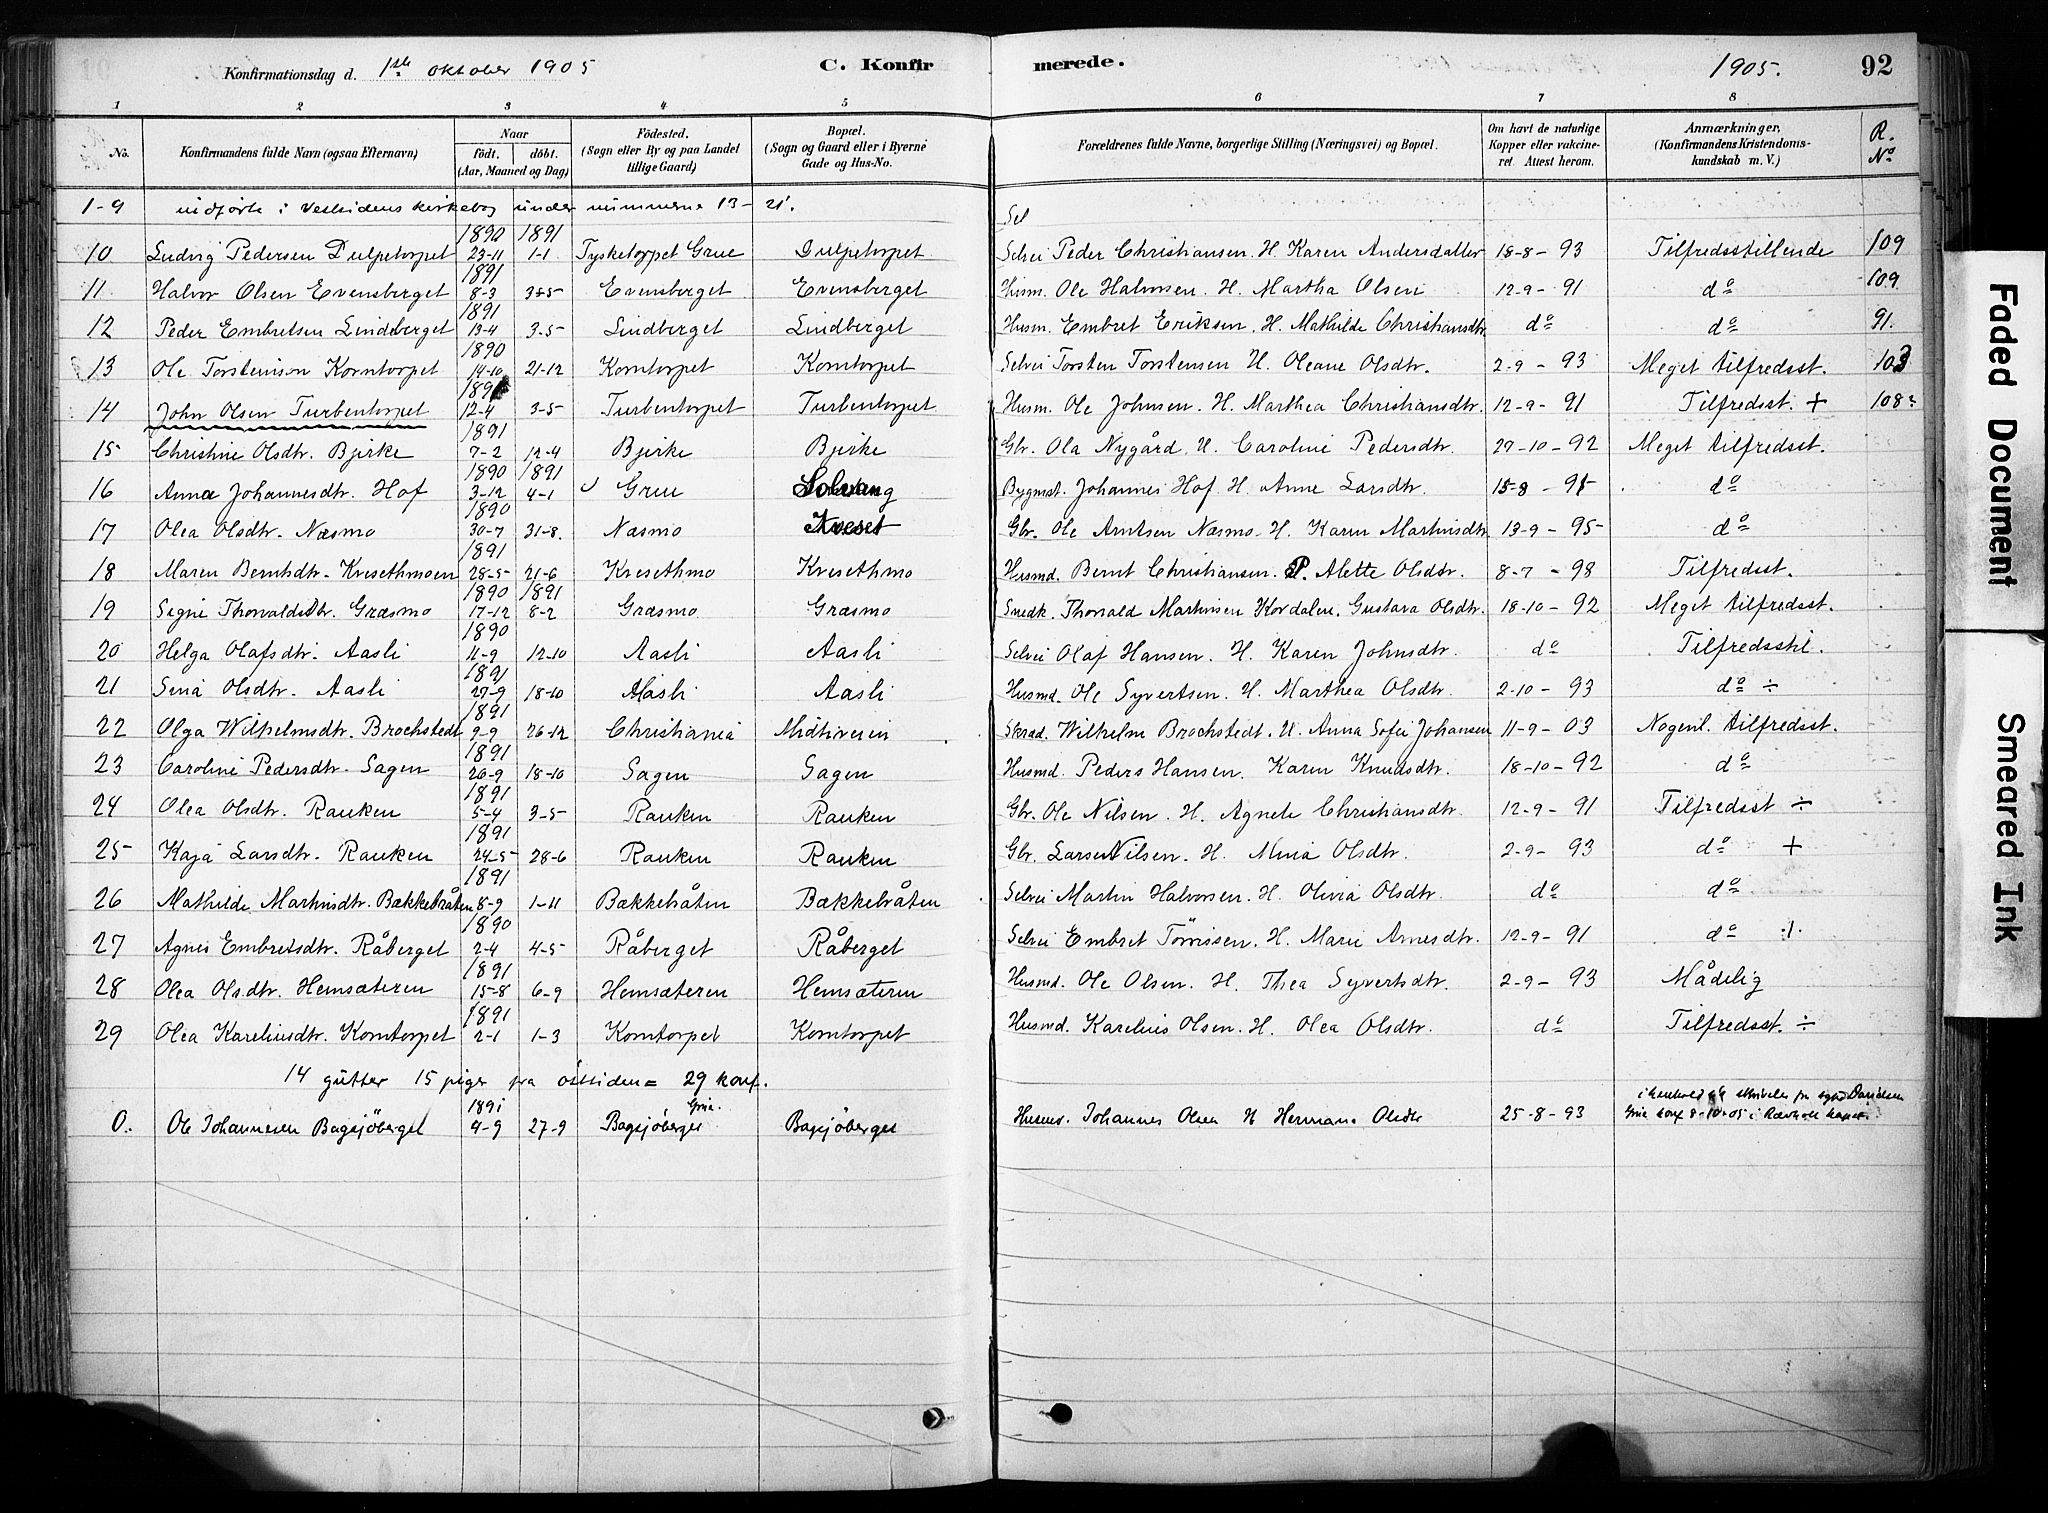 Konfirmationsdag d. 1ste oktober 1905 C. Konfirmerede. 1905. 92
1 2 3 4 5 6 7 8
No. Konfirmandens fulde Navn (ogsaa Efternavn) Naar födt. döbt. (Aar, Maaned og Dag) Födested. (Sogn eller By og paa Landet tillige Gaard) Bopæl. (Sogn og Gaard eller i Byerne Gade og Hus-No. Forældrenes fulde Navne, borgerlige Stilling (Næringsvei) og Bopæl. Om havt de naturlige Kopper eller vakcineret. Attest herom. Anmærkninger, (Konfirmandens Kristendomskundskab m. V.) R. No
1-9 indförte i Vestsidens kirkebog under nummerne 13-21.
10 Ludvig Pedersen Dulpetorpet 1890 23-11 1891 1-1 Tysketorpet Grue Dulpetorpet Selvei Peder Christiansen. H. Karen Andersdatter 18-8-93 Tilfredsstillende 109
11 Halvor Olsen Evensberget 1891 8-3 3-5 Evensberget Evensberget Husm. Ole Halvorsen. H. Martha Olsen 12-9-91 do 109
12 Peder Embretsen Lindberget 1891 13-4 3-5 Lindberget Lindberget Husm. Embret Eriksen. H. Mathilde Christiansdtr do do 91.
13 Ole Torstensen Korntorpet 1890 14-10 21-12 Korntorpet Korntorpet Selvei Torsten Torstensen H. Oleane Olsdtr. 2-9-93 Meget tilfredsst. 103
14 John Olsen Turbentorpet 1891 12-4 3-5 Turbentorpet Turbentorpet Husm. Ole Johnsen. H. Marthea Christiansdtr. 12-9-91 Tilfredsst. + 108
15 Christine Olsdtr. Bjerke 1891 7-2 12-4 Bjerke Bjerke Gbr. Ola Nygård H. Caroline Pedersdtr. 27-10-92 Meget tilfredsst.
16 Anna Johannesdtr. Hof 1890 3-12 1891 4-1 Grue Solvang Bygmst. Johannes Hof H. Anne Larsdtr. 15-8-95 do
17 Olea Olsdtr. Næsmo 1890 30-7 31-8. Næsmo Kveset Gbr. Ole Arntsen Næsmo. H. Karen Martinsdtr 13-9-95 do
18 Maren Berntsdtr. Kvesethmoen 1891 28-5 21-6 Kvesethmo Kvesethmo Husmd. Bernt Christiansen. P. Alette Olsdtr. 8-7-98 Tilfredsst.
19 Signe Thorvaldsdtr. Græsmo 1890 17-12 1891 8-2 Græsmo Græsmo Snedk. Thorvald Martinsen Kordalen. Gustava Olsdtr. 18-10-92 Meget tilfredsst.
20 Helga Olafsdtr. Aasli 1890 11-9 12-10 Aasli Aasli Selvei Olaf Hansen. H. Karen Johnsdtr. do Tilfredsstil.
21 Sina Olsdtr. Aasli 1891 27-9 18-10 Aasli Aasli Husmd. Ole Syvertsen. H. Marthea Olsdtr. 2-10-93 do ÷
22 Olga Wilhelmsdtr. Brochstedt 1891 9-9 26-12 Christiania Midtiveien Skræd. Wilhelm Brochstedt. H. Anna Sofie Johansen 11-9-03 Nogenl. tilfredsst.
23 Caroline Pedersdtr. Sagen 1891 26-9 18-10 Sagen Sagen Husmd. Peders Hansen. Karen Knudsdtr. 18-10-92 do
24 Olea Olsdtr. Rauken 1891 5-4 3-5 Rauken Rauken Gbr. Ole Nilsen. H. Agnete Christiansdtr. 12-9-91 Tilfredsst ÷
25 Kaja Larsdtr. Rauken 1891 24-5 28-6 Rauken Rauken Gbr. Larsen Nilsen. H. Mina Olsdtr. 2-9-93 do +
26 Mathilde Martinsdtr. Bækkebråten 1891 8-9 1-11 Bækkebråten Bækkebråten Selvei Martin Halvorsen. H. Olivia Olsdtr. do do
27 Agnes Embretsdtr. Råberget 1890 2-4 4-5 Råberget Råberget Selvei Embret Tönnesen. H. Marie Arnesdtr. 12-9-91 do ·/·
28 Olea Olsdtr. Hemsæteren 1891 15-8 6-9 Hemsæteren Hemsæteren Husmd. Ole Olsen. H. Thea Syvertsdtr. 2-9-93 Mådelig
29 Olea Kareliusdtr. Korntorpet 1891 2-1 1-3 Korntorpet Korntorpet Husmd. Karelius Olsen. H. Olea Olsdtr. do Tilfredsst. ÷
14 gutter 15 piger fra östsiden = 29 konf.
0. Ole Johannesen Bagsjöberget 1891 4-9 27-9 Bagsjöberget Grue. Bagsjöberget Husmd. Johannes Olsen H Hermana Olsdtr 25-8-93 i henhold til skrivelse fra Grue konf 8-10-05 i
Faded Document
Smeared Ink